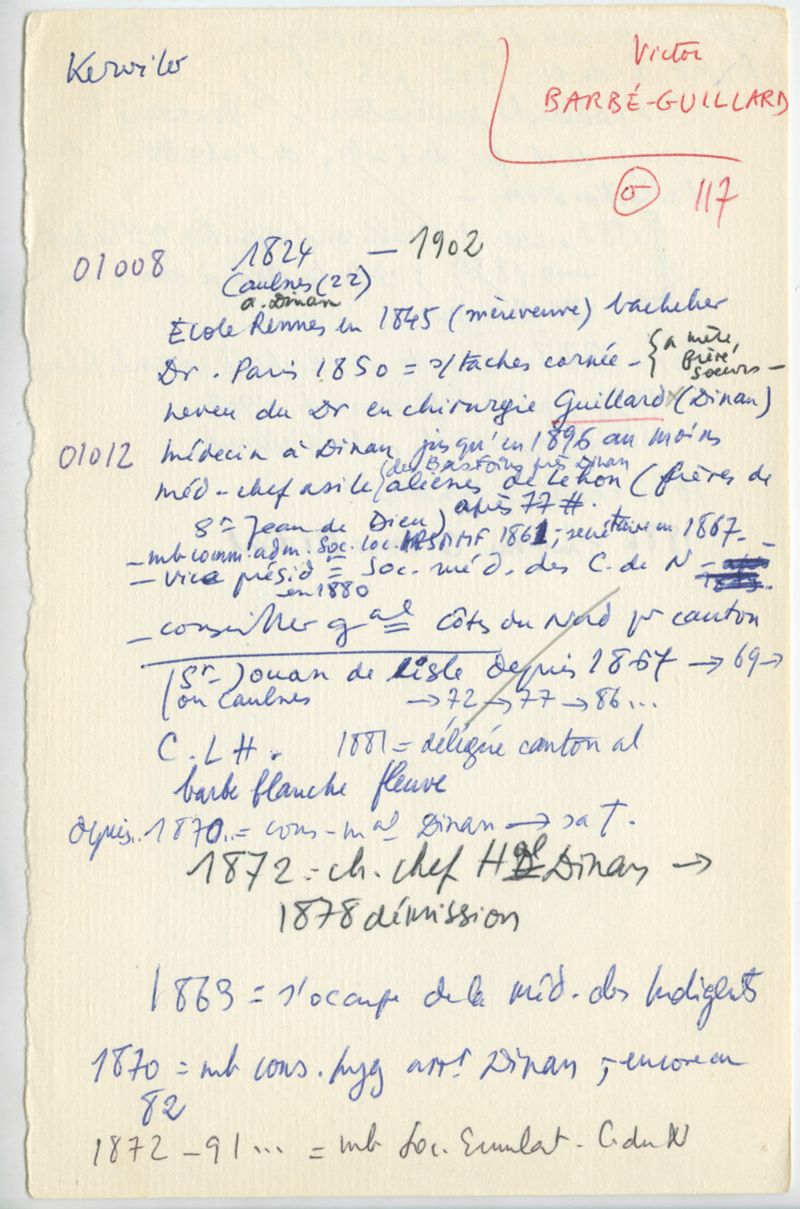 Kerviler
Victor
BARBÉ-GUILLARD
117
01008 1824 — 1902
Caulnes (22)
a. Dinan
Ecole Rennes en 1845 (mère veuve) bachelier
Dr. Paris 1850 = s/ taches cornée - { a mère, frère, soeurs -
neveu du Dr en chirurgie Guillard (Dinan)
01012 médecin à Dinan jusqu'en 1896 au moins
(des Bas Foins près Dinan
méd-chef asile aliénés de Léhon (frères de
St Jean de Dieu) après 77 #.
- mb comm. adm. Soc. loc. 1861; secrétaire en 1867 -
- vice présid = Soc. méd. des C. de N -
en 1880
- conseiller gal Côtes du Nord pr canton
(St-) Jouan de l'isle depuis 1867 → 69 →
ou Caulnes → 72 → 77 → 86 ...
C. L H. 1881 = délégué cantonal
barbe blanche fleuve
depuis 1870 = cons-mal Dinan → sa †.
1872 = ch. chef Hal Dinan →
1878 démission
1869 = s'occupe de la méd. des Indigents
1870 = mb cons. hyg arrt Dinan, encore en
82
1872 - 91 ... = mb Soc. Emulat. C. du N